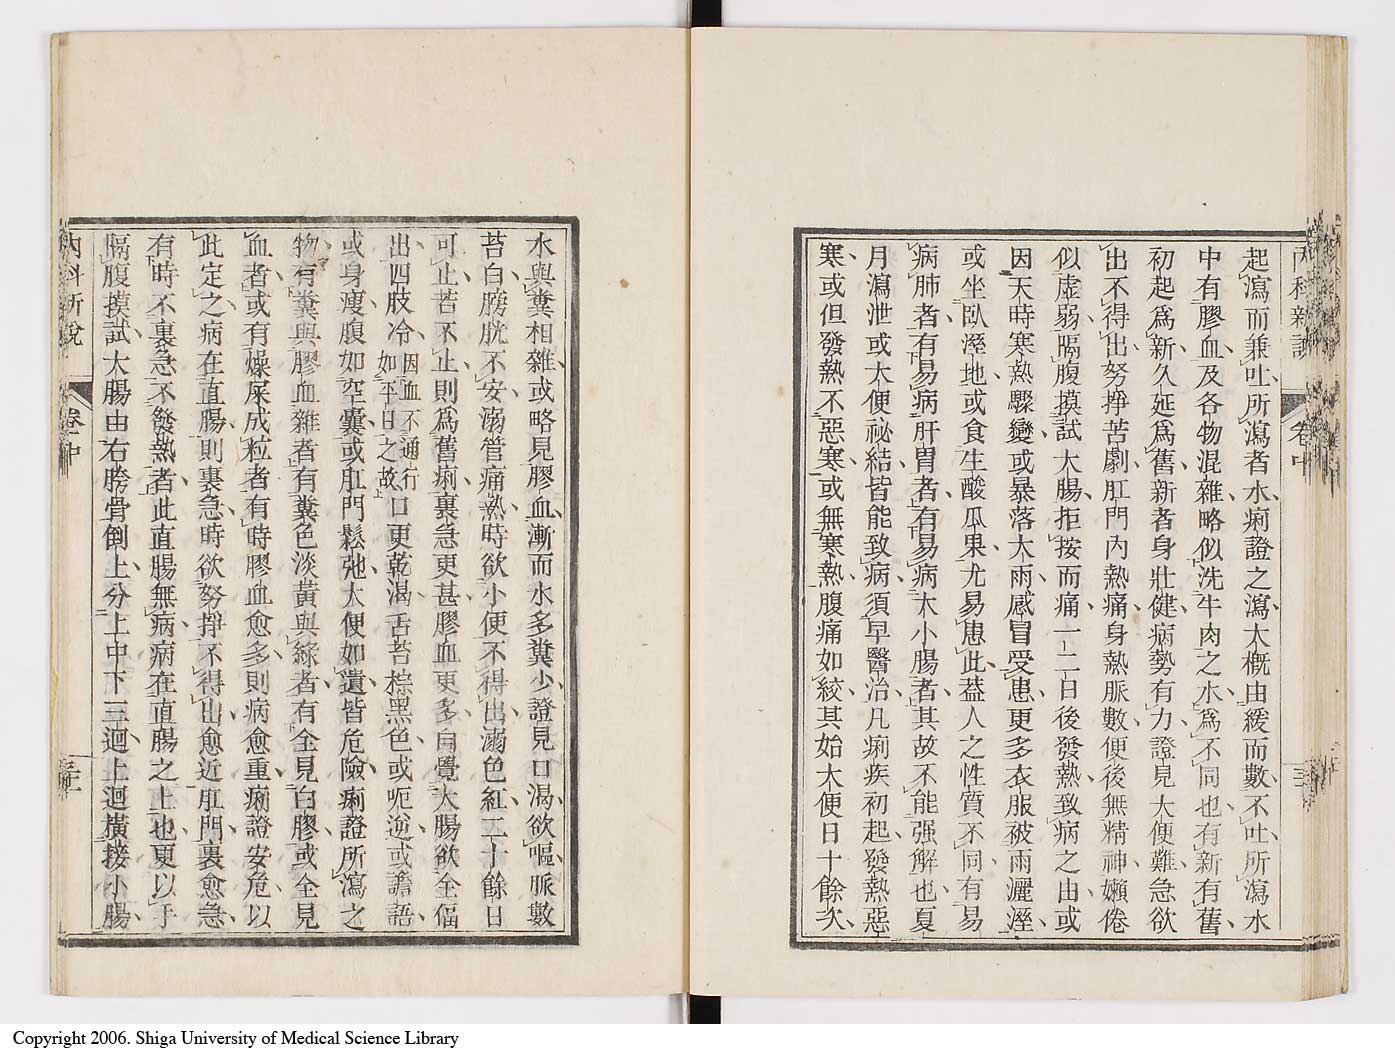 內科新說
卷中
起瀉而兼吐所瀉者水痢證之瀉大概由緩而數不吐所瀉水
中有膠血及各物混雜略似洗牛肉之水爲不同也有新有舊
初起爲新久延爲舊新者身壯健病勢有力證見大便難急欲
出不得出努掙苦劇肛門內熱痛身熱脈數便後無精神嬾倦
似虛弱隔腹摸試大腸拒按而痛一二日後發熱致病之由或
因天時寒熱驟變或暴落大雨感冒受患更多衣服被雨灑溼
或坐臥溼地或食生酸瓜果尤易患此葢人之性質不同有易
病肺者有易病肝胃者有易病大小腸者其故不能强解也夏
月瀉泄或大便祕結皆能致病須早醫治凡痢疾初起發熱惡
寒或但發熱不惡寒或無寒熱腹痛如絞其始大便日十餘次
水與糞相雜或略見膠血漸而水多糞少證見口渴欲嘔脈數
苔白膀胱不安溺管痛熱時欲小便不得出溺色紅二十餘日
可止苦不止則爲舊痢裏急更甚膠血更多自覺大腸欲全偪
出四肢冷因血不通行如平日之故口更乾渴舌苔棕黑色或呃逆或譫語
或身瘦腹如空囊或肛門鬆弛大便如遺皆危險痢證所瀉之
物有糞與膠血雜者有糞色淡黃與綠者有全見白膠或全見
血者或有燥屎成粒者有時膠血愈多則病愈重痢證安危以
此定之病在直腸則裏急時欲努掙不得出愈近肛門裏愈急
有時不裏急不發熱者此直腸無病病在直腸之上也更以手
隔腹摸試大腸由右胯骨倒上分上中下三迴上迴橫接小腸
內科新說
卷中